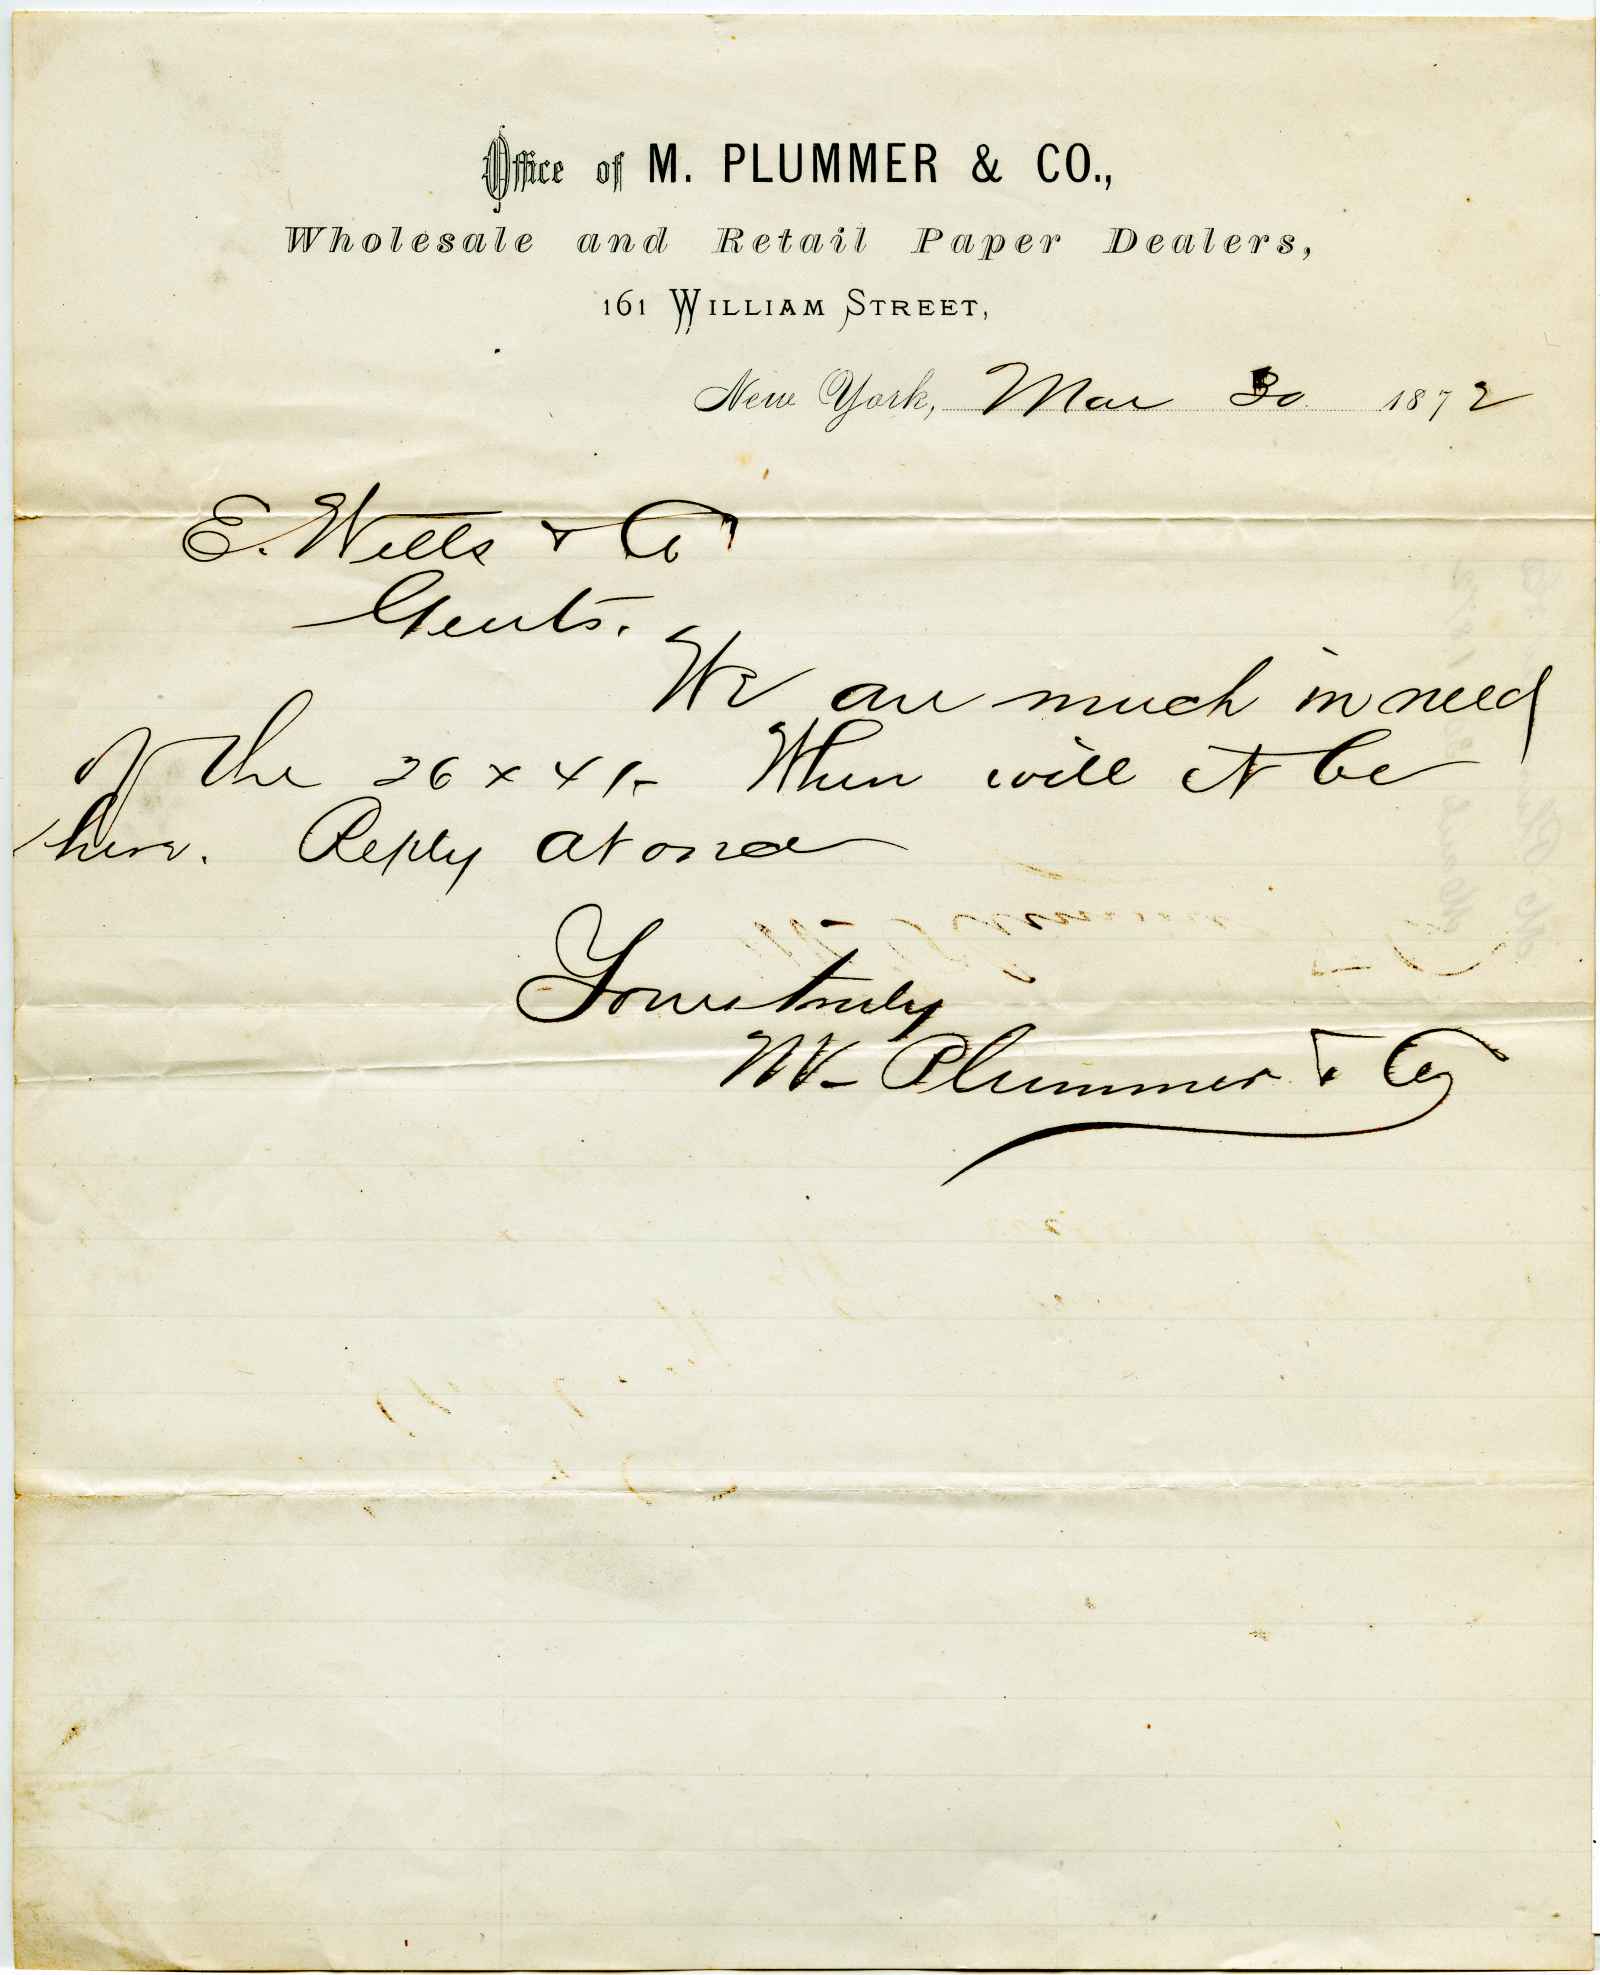 Office of M. PLUMMER & CO.,
Wholesale and Retail Paper Dealers,
161 WILLIAM STREET,
New York, Mar 30 1872
E. Wells & Co
Gents.
We are much in need
of the 26 x 41- When will it be
here. Reply at once
Yours truly
M- Plummer & Co